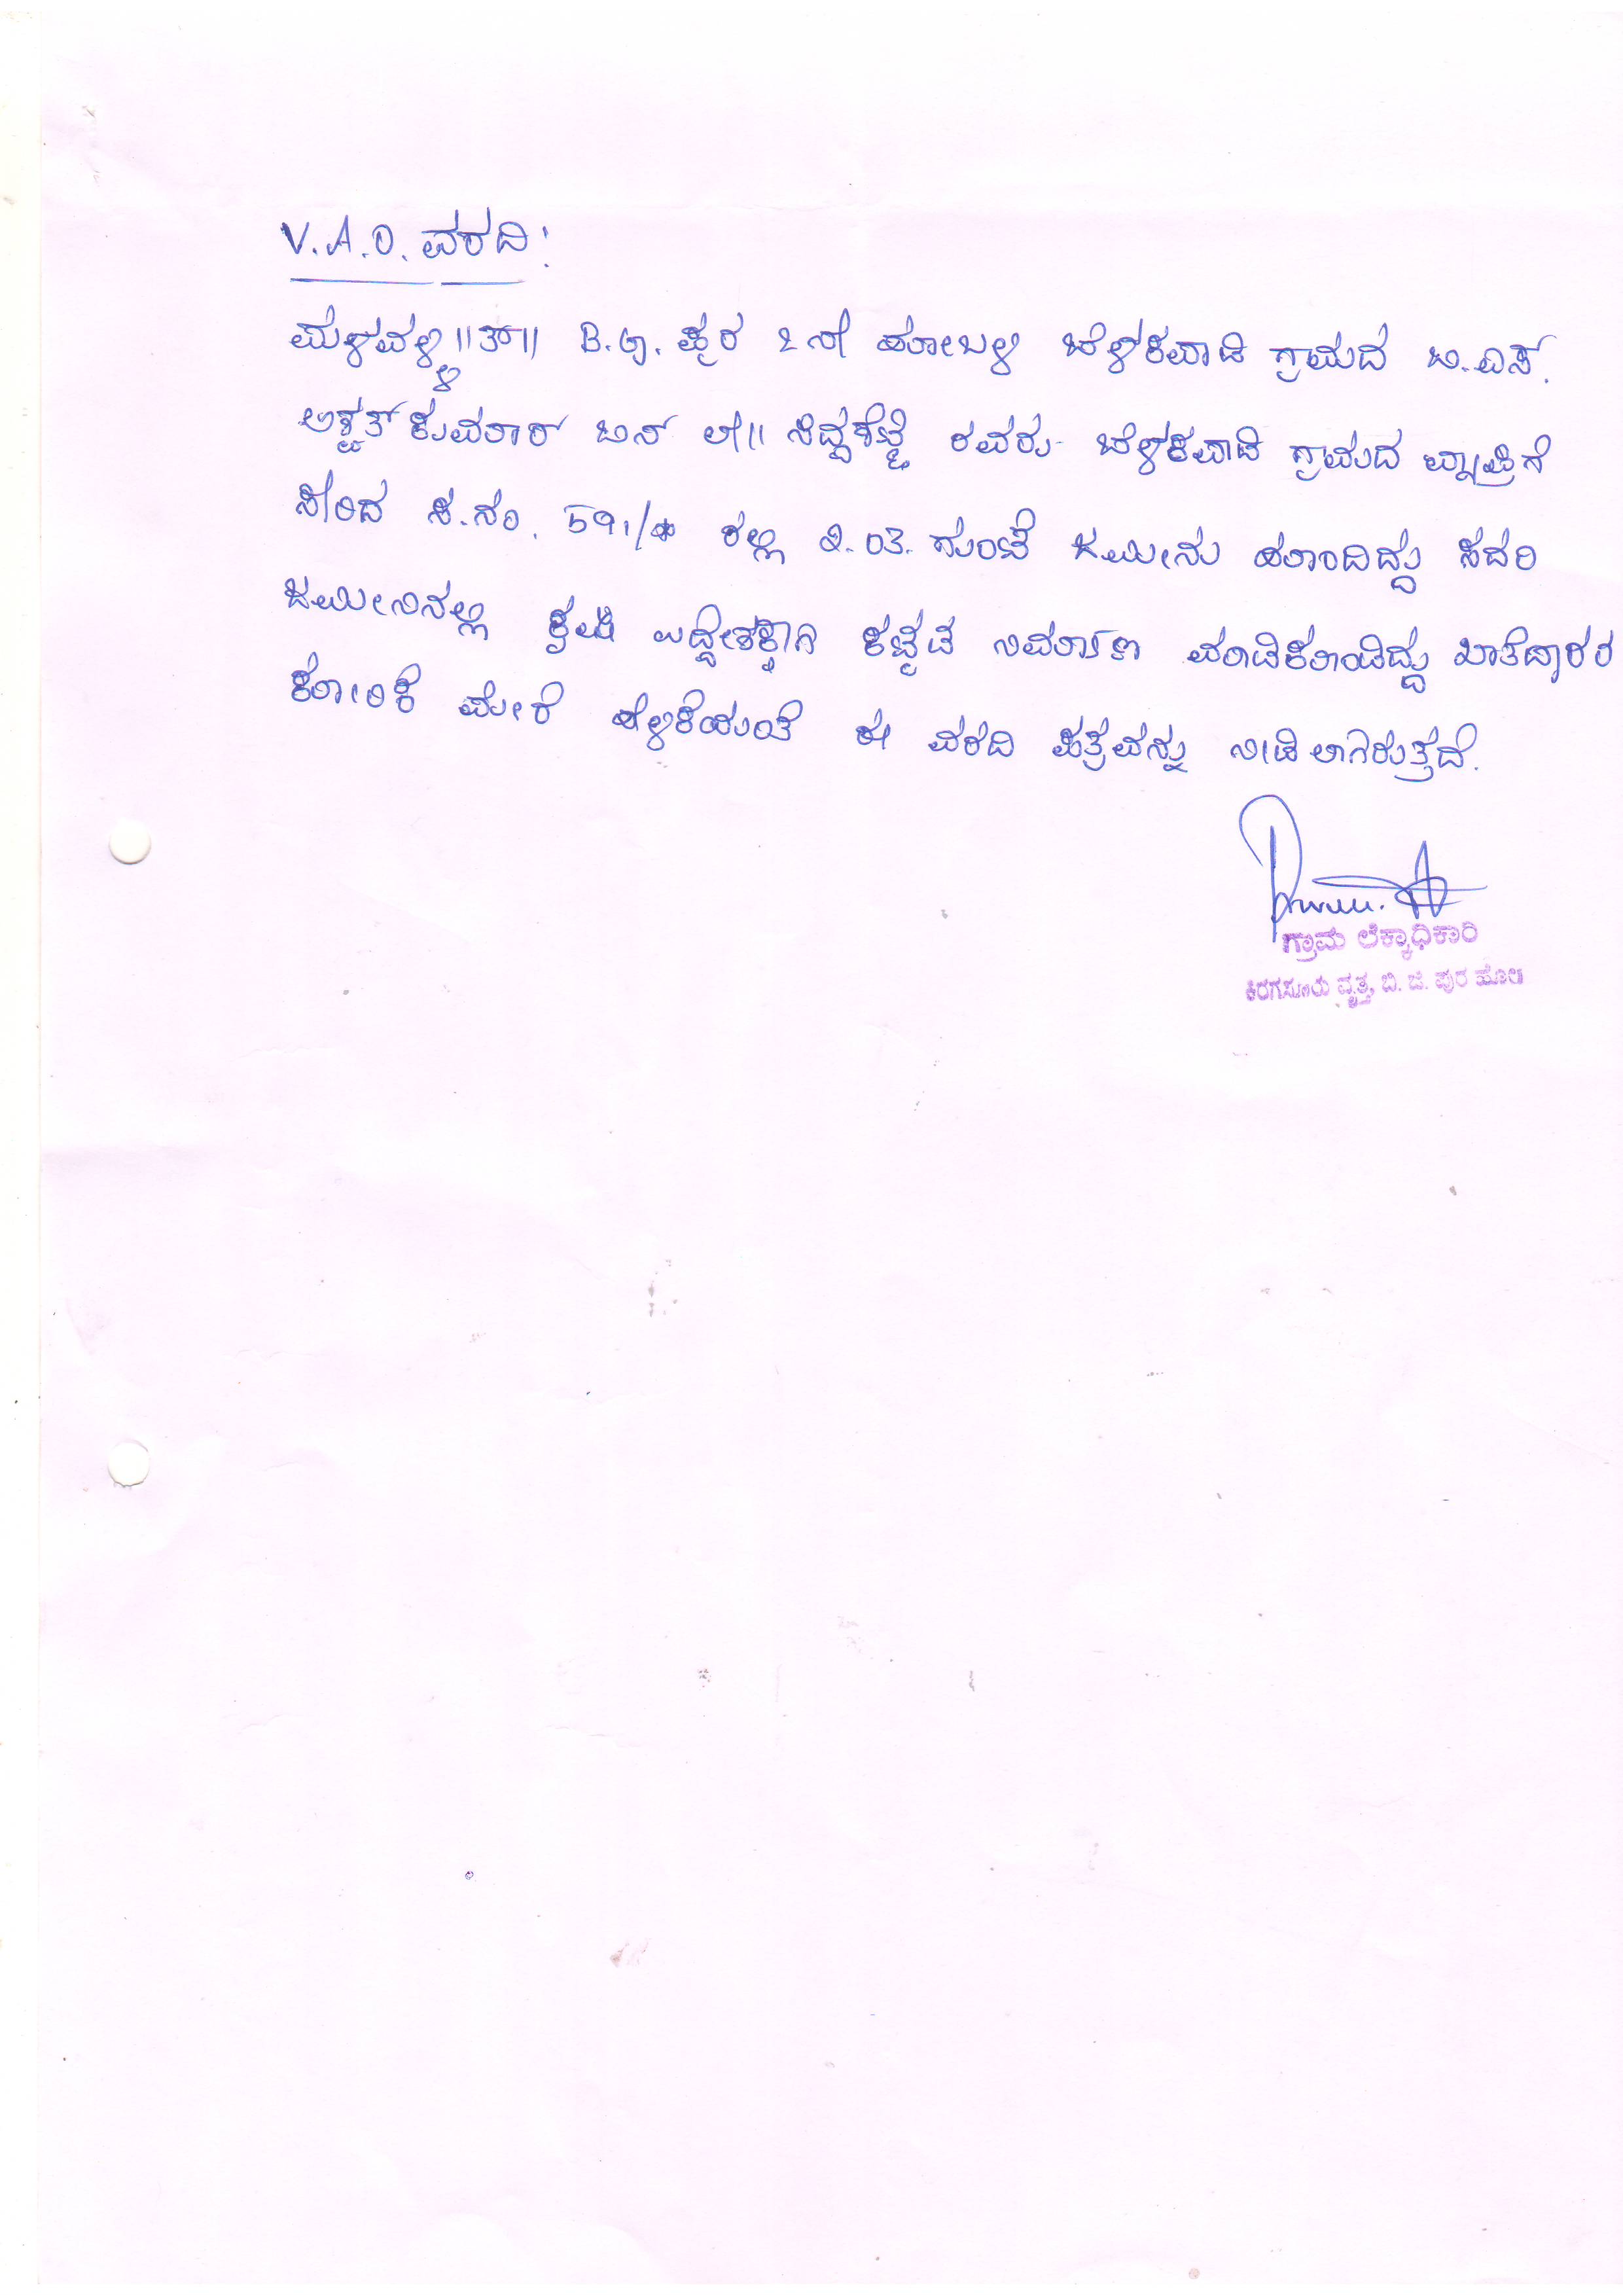 V.A.O. ವರದಿ:
ಮಳವಳ್ಳಿ ||ತಾ|| B.G. ಪುರ 2ನೇ ಹೋಬಳಿ ಬೆಳಕವಾಡಿ ಗ್ರಾಮದ ಬಿ.ಎಸ್.
ಅಶ್ವತ್ ಕುಮಾರ್ ಬಿನ್ ಲೇ|| ಸಿದ್ದಶೆಟ್ಟಿ ರವರು ಬೆಳಕವಾಡಿ ಗ್ರಾಮದ ವ್ಯಾಪ್ತಿಗೆ
ಸೇರಿದ ಸ.ನಂ. ರಲ್ಲಿ 2.03. ಗುಂಟೆ ಜಮೀನು ಹೊಂದಿದ್ದು ಸದರಿ
ಜಮೀನಿನಲ್ಲಿ ಕೃಷಿ ಉದ್ದೇಶಕ್ಕಾಗಿ ಕಟ್ಟಡ ನಿರ್ಮಾಣ ಮಾಡಿಕೊಂಡಿದ್ದು ಖಾತೆದ್ದಾರರ
ಕೋರಿಕೆ ಮೇರೆ ಹೇಳಿಕೆಯಂತೆ ಈ ವರದಿ ಪತ್ರವನ್ನು ನೀಡಲಾಗಿರುತ್ತದೆ.
ಗ್ರಾಮ ಲೆಕ್ಕಾಧಿಕಾರಿ
ಕಿರಗಸೂರು ವೃತ್ತ, ಬಿ. ಜಿ. ಪುರ ಹೋಬಳಿ